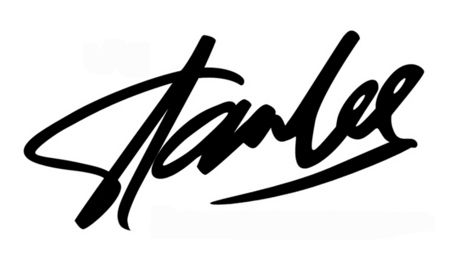 Stan Lee